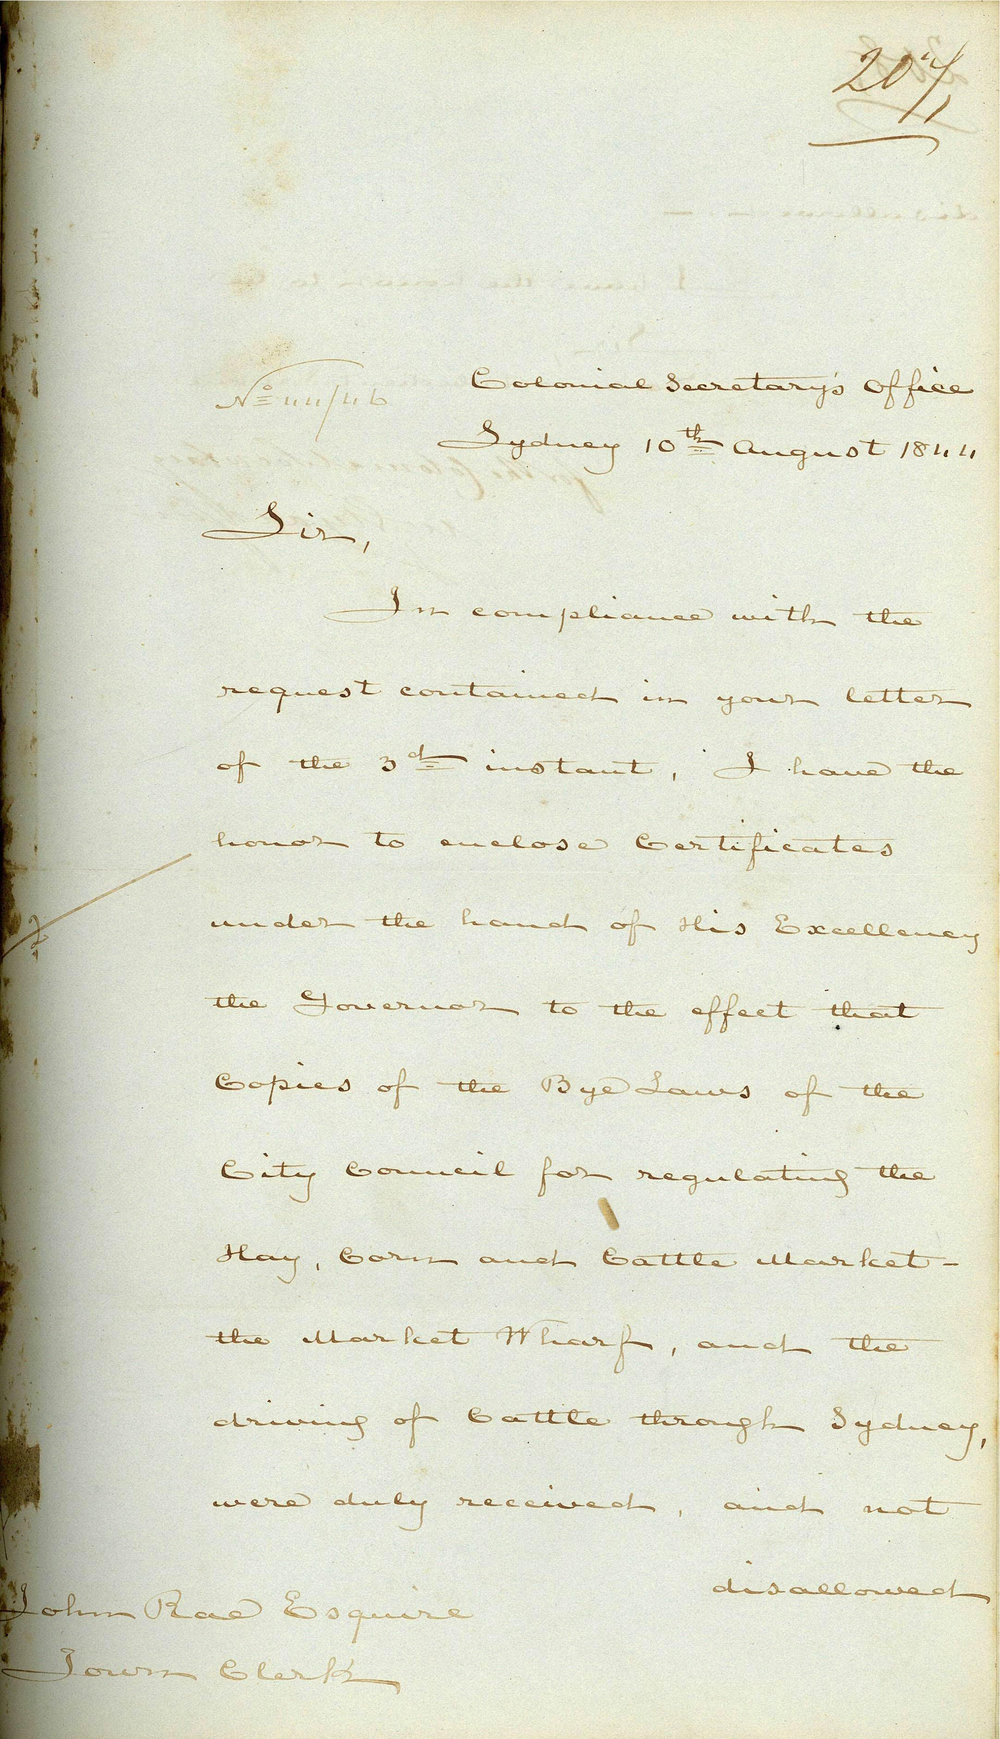 207/1
Colonial Secretary's Office
No 44/46
Sydney 10th August 1844
Sir,
In compliance with the
request contained in your letter
of the 3d instant, I have the
honor to enclose Certificates
under the hand of His Excellency
the Governor to the effect that
Copies of the Bye Laws of the
City Council for regulating the
Hay, Corn and Cattle Market –
the Market Wharf, and the
driving of Cattle through Sydney,
were duly received, and not
disallowed
John Rae Esquire
Town Clerk